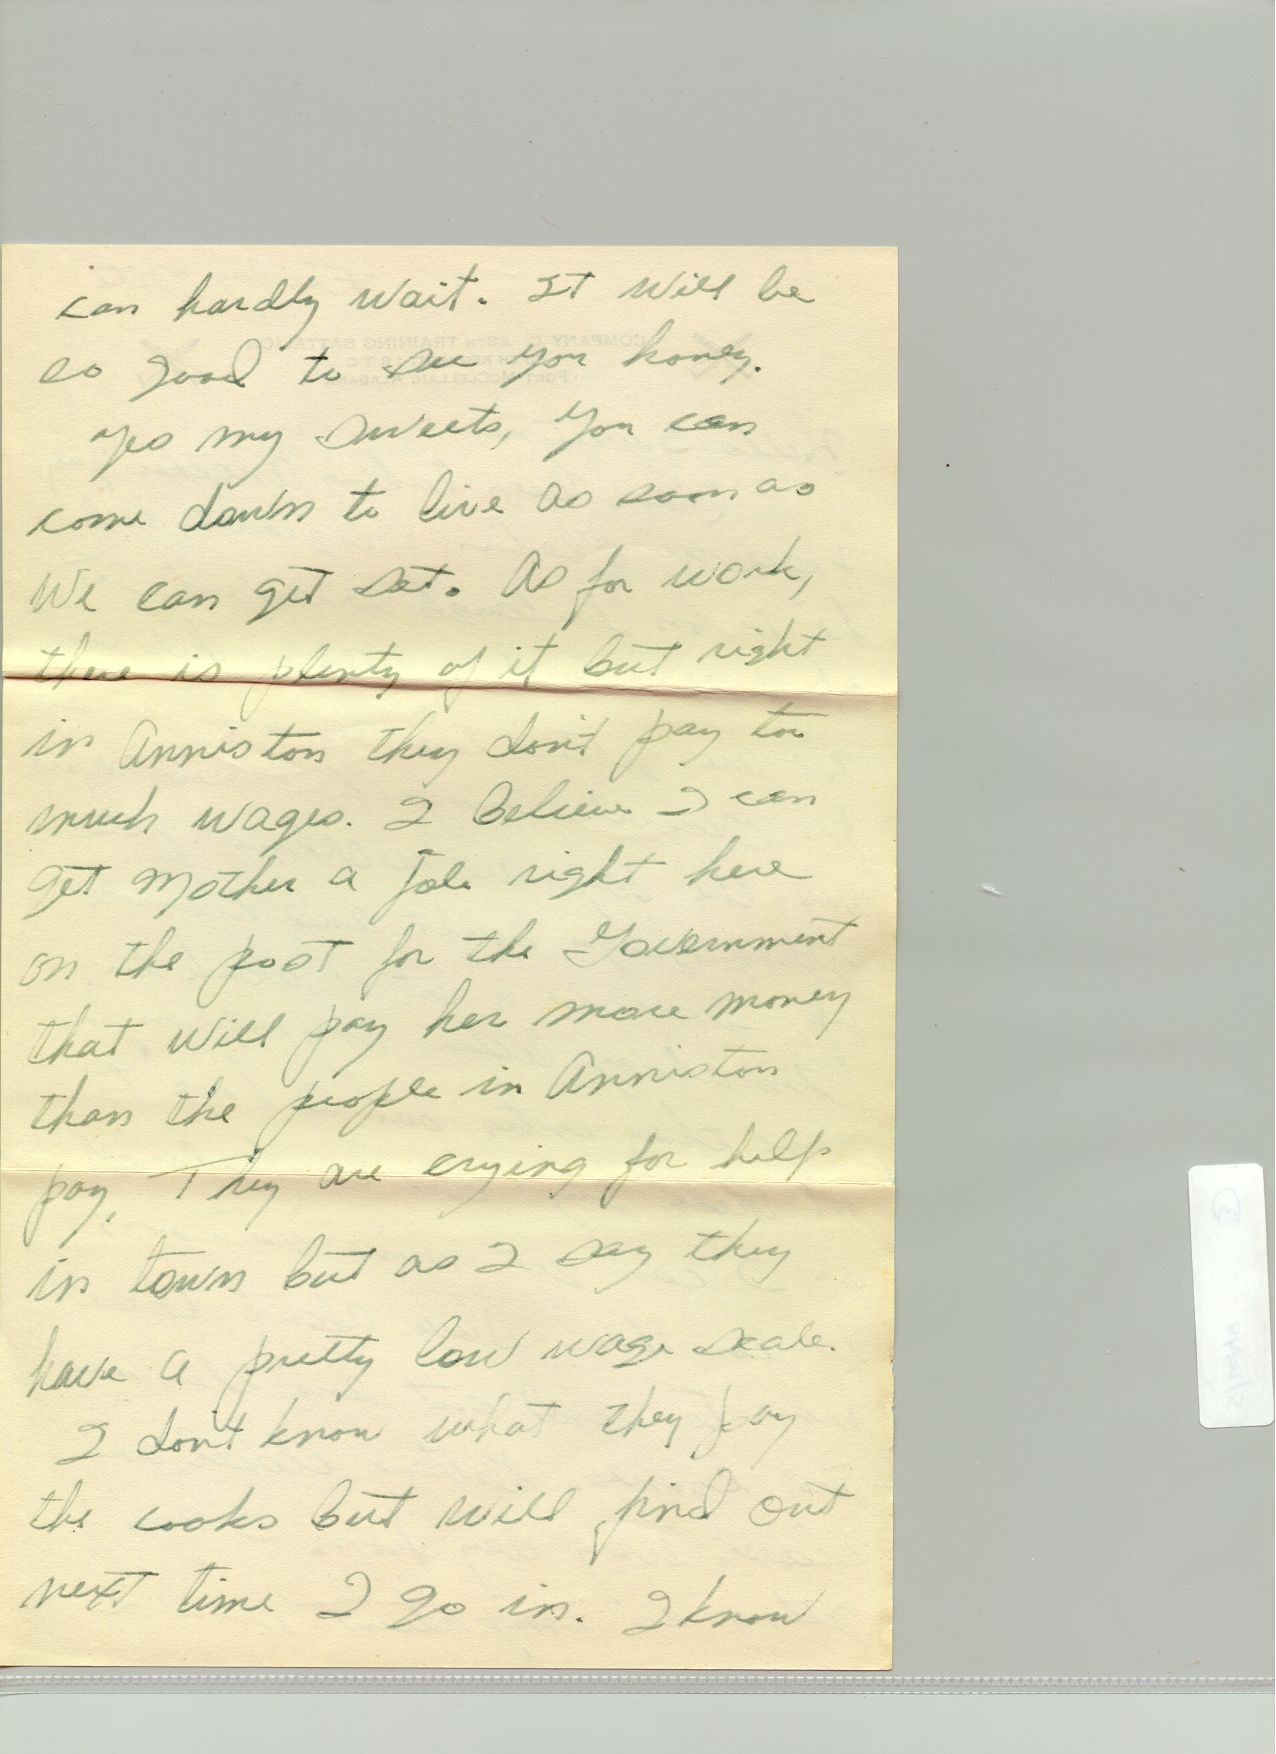 can hardly wait. It will be
so good to see you honey.
Yes my sweets, you can
come down to live as soon as
We can get set. As for work,
there is plenty of it but right
in Anniston they don't pay too
much wages. I believe I can
get Mother a job right here
on the post for the Government
that will pay her more money
than the people in Anniston
pay, They are crying for help
in town but as I say they
have a pretty low wage scale.
I don't know what they pay
the cooks but will find out
next time I go in. I know